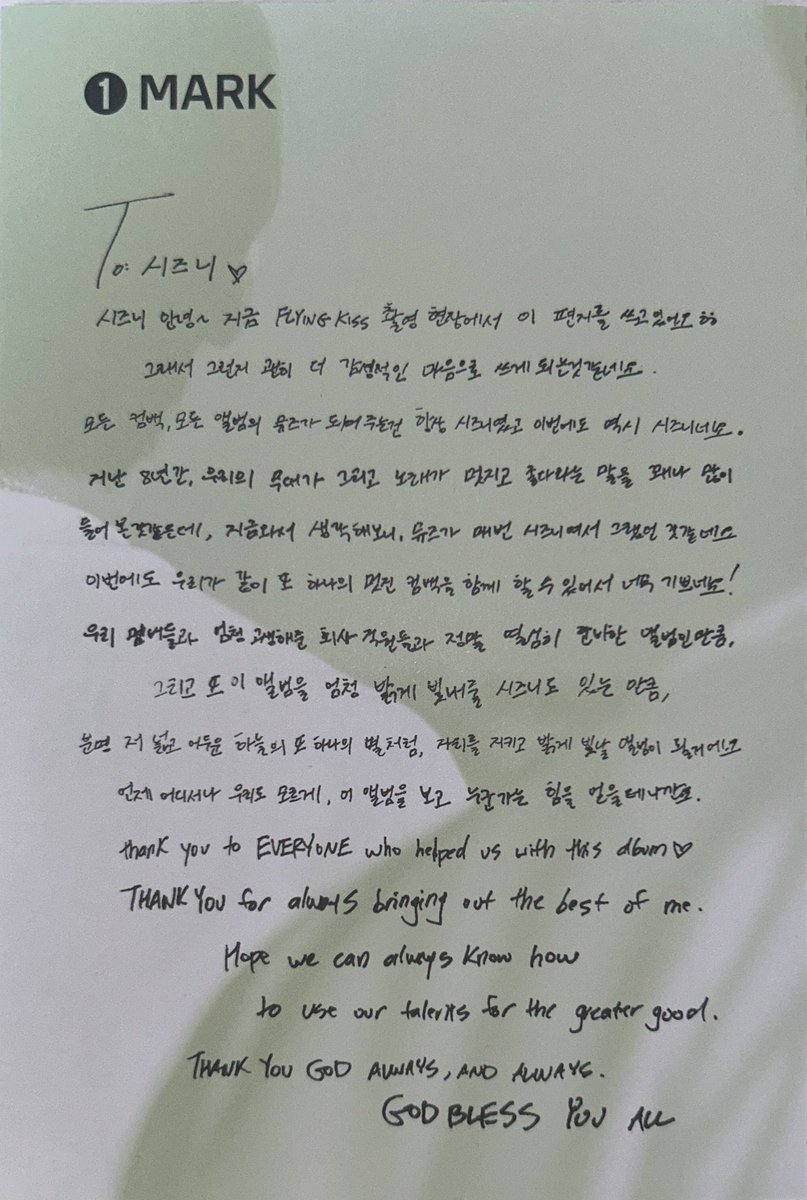 1 MARK
To: 시즈니 ♡
시즈니 안녕~ 지금 FLYING KISS 촬영 현장에서 이 편지를 쓰고있어요 ㅎㅎ
그래서 그런지 괜히 더 감성적인 마음으로 쓰게 되는것같네요.
모든 컴백, 모든 앨범의 뮤즈가 되어주는건 항상 시즈니였고 이번에도 역시 시즈니네요.
지난 8년간, 우리의 무대가 그리고 노래가 멋지고 좋다라는 말을 꽤나 많이
들어 본것같은데, 지금와서 생각해보니, 뮤즈가 매번 시즈니여서 그랬던 것같네요
이번에도 우리가 같이 또 하나의 멋진 컴백을 함께 할 수 있어서 너무 기쁘네요!
우리 멤버들과 엄청 고생해준 회사 직원들과 정말 열심히 준비한 앨범인만큼,
그리고 또 이 앨범을 엄청 밝게 빛내줄 시즈니도 있는 만큼,
분명 저 넓고 어두운 하늘의 또 하나의 별처럼, 자리를 지키고 밝게 빛날 앨범이 될거에요
언제 어디서나 우리도 모르게, 이 앨범을 보고 누군가는 힘을 얻을테니깐요.
thank you to EVERYONE who helped us with this album♡
THANK YOU for always bringing out the best of me.
Hope we can always know how
to use our talents for the greater good.
THANK YOU GOD ALWAYS, AND ALWAYS.
GOD BLESS YOU ALL